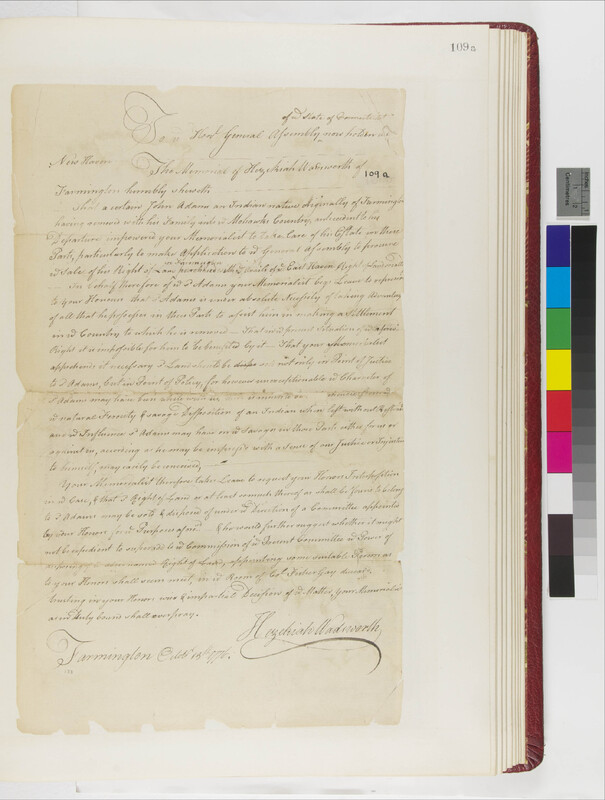 109a
of sd State of Connecticut
To ye Honl. General Assembly now holden at
New Haven
The Memorial of Hezekiah Wadsworth of
109a
Farmington humbly sheweth
That a certain John Adams an Indian native originally of Farmington
having removd with his Family into ye Mohawks Country, antecedent to his
Departure impowered your Memorialist to take Care of his Estate in these
Parts, particularly to make Application to ye General Assembly to procure
ye Sale of his Right of
in Farmington
In behalf therefore of sd Adams your Memorialist begs Leave to represent
to your Honours that sd Adams is under absolute Necessity of taking Advantage
of all that he possesses in these Parts to assist him in making a Settlement
in ye Country to which he is removed — That in ye present Situation of ye aforesd
Right it is impossible for him to be benefited by it — That your Memorialist
apprehends it necessary sd Land not only in Point of Justice
to sd Adams, but in Point of Policy, for however unexceptionable ye Character of
sd Adams may have been
ye natural Ferocity & savage Disposition of an Indian when left without Restraint
and ye Influence sd Adams may have on ye Savages in those Parts either for or
against us, according as he may be impressed with a Sense of our Justice or Injustice
to himself, may easily be conceived, —
Your Memorialist therefore takes Leave to request your Honours Interposition
in ye Case, & that sd Right of Land or at least so much thereof as shall be found to belong
to sd Adams may be sold & disposed of under ye Direction of a Committee appointed
by your Honours for ye Purpose aforesd & he would further suggest whether it might
not be expedient to supersede ye Commission of ye Present Committee
Right of Land, appointing some suitable Person as
to your Honours shall seem meet, in ye Room of Col. Fisher Gay deceasd.
trusting in your Honours wise & impartial Decision of ye Matter, your Memorialist
as in duty bound shall ever pray.
Hezekiah Wadsworth
Farmington Octbr 18th 1776.